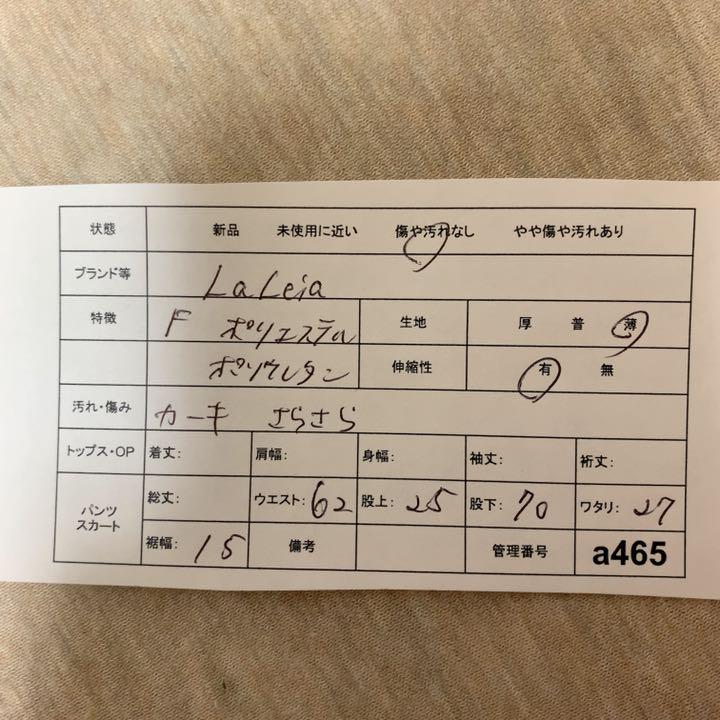 状態 新品 未使用に近い 傷や汚れなし やや傷や汚れあり
ブランド等 LaLeia
特徴 F ポリエステル 生地 厚 普 薄
ポリウレタン 伸縮性 有 無
汚れ・傷み カーキ さらさら
トップス・OP 着丈: 肩幅: 身幅: 袖丈: 裄丈:
パンツ
スカート
総丈: ウエスト: 62 股上: 25 股下: 70 ワタリ: 27
裾幅: 15 備考 管理番号 a465